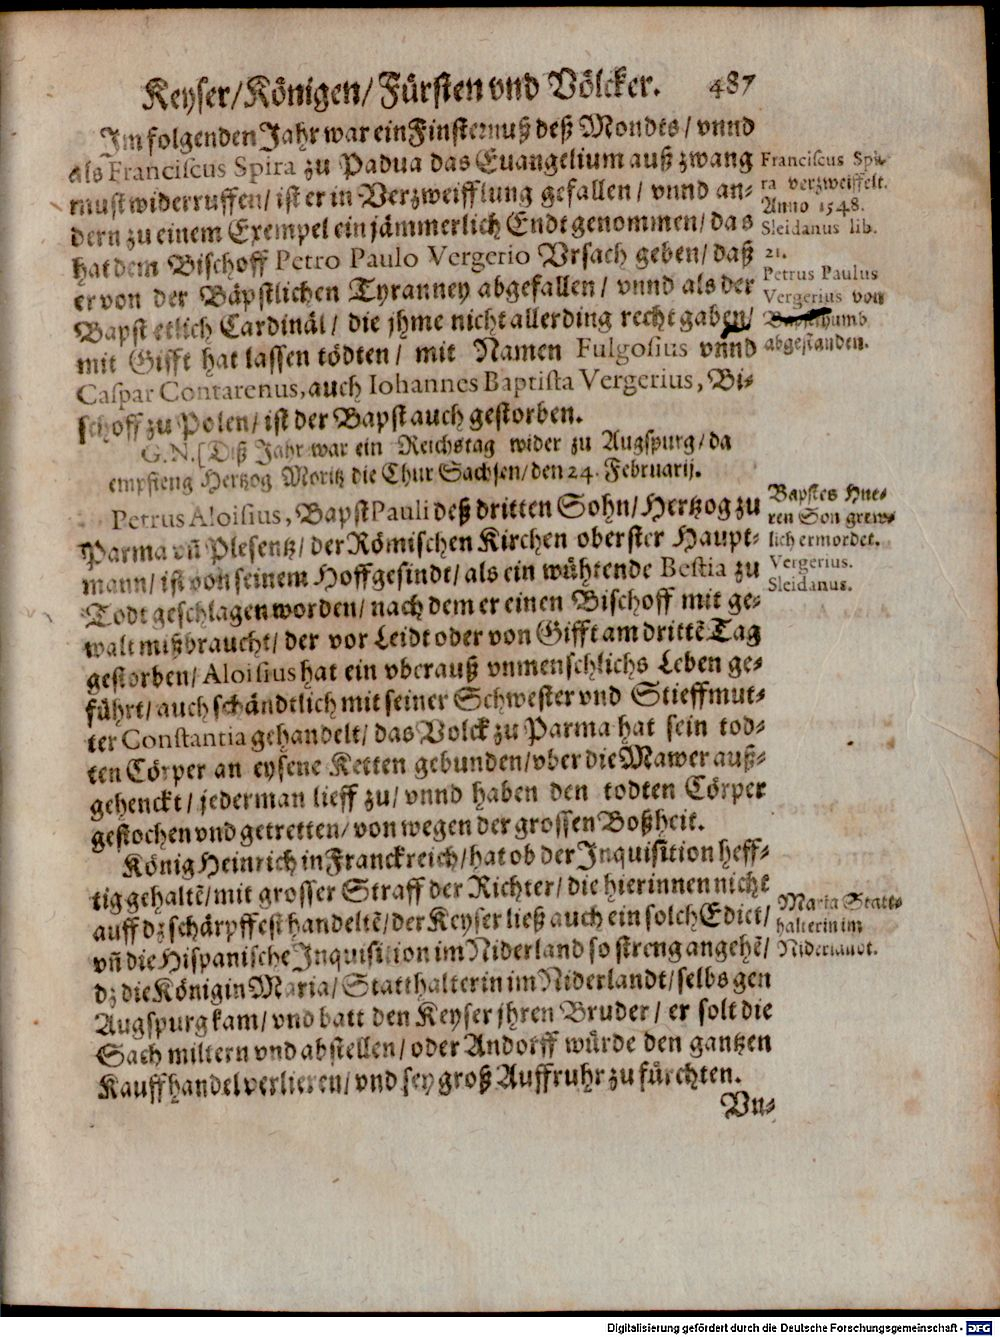 Keyser/Königen/Fürsten vnd Völcker. 487
Im folgenden Jahr war ein Finsternuß deß Mondes/ vnnd
als Franciscus Spira zu Padua das Euangelium auß zwang
must widerruffen/ ist er in Verzweifflung gefallen/ vnnd an-
dern zu einem Exempel ein jämmerlich Endt genommen/ das
hat dem Bischoff Petro Paulo Vergerio Vrsach geben/ daß
er von der Bäpstlichen Tyranney abgefallen/ vnnd als der
Bapst etlich Cardinäl/ die jhme nicht allerding recht gaben/
mit Gifft hat lassen tödten/ mit Namen Fulgosius vnnd
Caspar Contarenus, auch Iohannes Baptista Vergerius, Bi-
schoff zu Polen/ ist der Bapst auch gestorben.
Franciscus Spi-
ra verzweiffelt.
Anno 1548.
Sleidanus lib.
21.
Petrus Paulus
Vergerius von
Bapstthumb
abgestanden.
G.N. [Diß Jahr war ein Reichstag wider zu Augspurg/ da
empfieng Hertzog Moritz die Chur Sachsen/ den 24. Februarij.
Petrus Aloisius, Bapst Pauli deß dritten Sohn/ Hertzog zu
Parma vñ Plesentz/ der Römischen Kirchen oberster Haupt-
mann/ ist von seinem Hoffgesindt/ als ein wühtende Bestia zu
Todt geschlagen worden/ nach dem er einen Bischoff mit ge-
walt mißbraucht/ der vor Leidt oder von Gifft am drittẽ Tag
gestorben/ Aloisius hat ein vberauß vnmenschlichs Leben ge-
führt/ auch schändtlich mit seiner Schwester vnd Stieffmut-
ter Constantia gehandelt/ das Volck zu Parma hat sein tod-
ten Cörper an eysene Ketten gebunden/ vber die Mawer auß-
gehenckt/ jederman lieff zu/ vnnd haben den todten Cörper
gestochen vnd getretten/ von wegen der grossen Boßheit.
Bapstes Hue-
ren Son grew-
lich ermordet.
Vergerius.
Sleidanus.
König Heinrich in Franckreich/ hat ob der Inquisition heff-
tig gehaltẽ/ mit grosser Straff der Richter/ die hierinnen nicht
auff dz schärpffest handeltẽ/ der Keyser ließ auch ein solch Edict/
vñ die Hispanische Inquisition im Niderland so streng angehẽ/
dz die Königin Maria/ Statthalterin im Niderlandt/ selbs gen
Augspurg kam/ vnd batt den Keyser jhren Bruder/ er solt die
Sach miltern vnd abstellen/ oder Andorff würde den gantzen
Kauffhandel verlieren/ vnd sey groß Auffruhr zu fürchten.
Maria Statt-
halterin im
Niderlandt.
Vn-
Digitalisierung gefördert durch die Deutsche Forschungsgemeinschaft - DFG